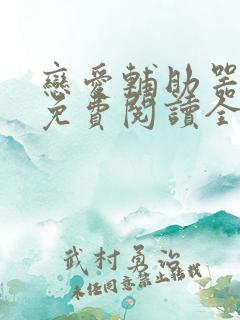 戀愛輔助器
免費閱讀全
武村勇治
未經同意禁止轉載